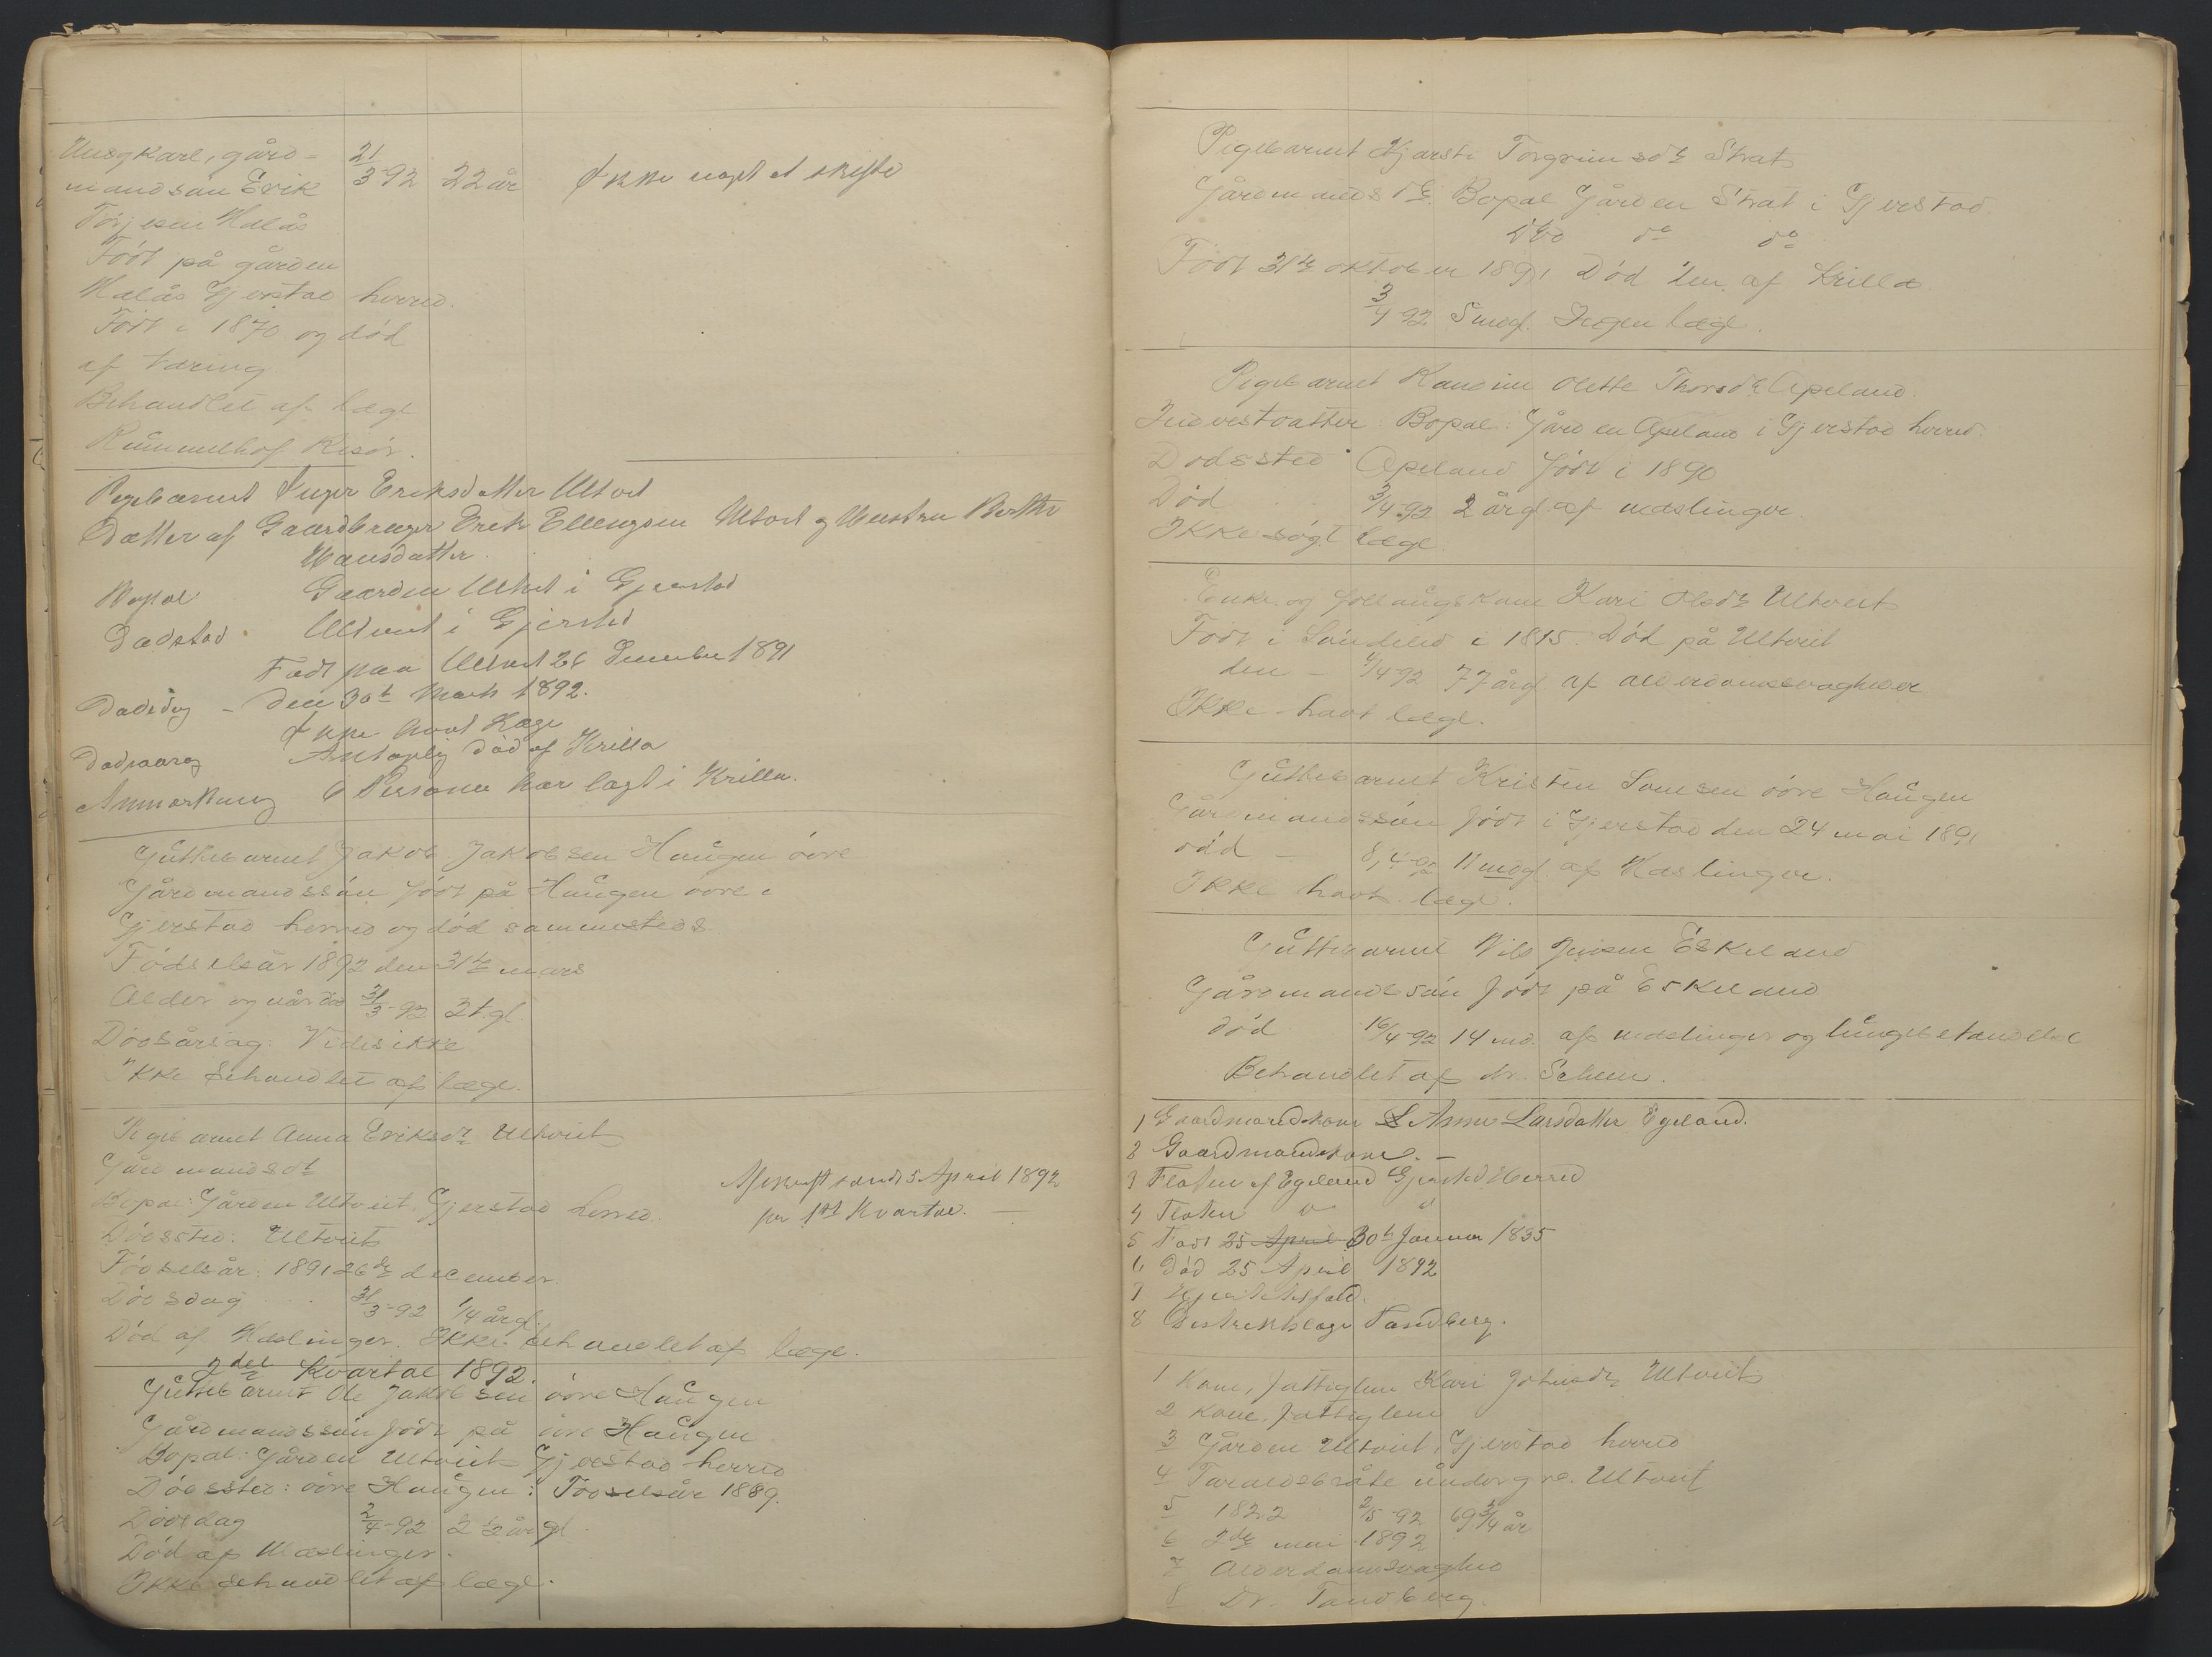 Ungkarl, gård= 21/3-92 22 år Ikke noget at skifte
mandsøn Erik
Torjesen Halås
Født på gården
Halås Gjerstad herred.
Født i 1870 og død
af tæring
Behandlet af læge
Kummelhof Risør.
Pigebarnet Inger Eriksdatter Ultvet
Datter af Gaardbruger Erik Ellengsen Ultvet og Hustru Berthe
Hansdatter.
Bopæl Gaarden Ultvet i Gjerstad
Dødstad Ultvet i Gjersted
Født paa Ultvet 26 December 1891
Dødsdag - Den 30te Marts 1892.
Ikke havt Læge
Dødsaarsag Antagelig død af Krilla
Anmærkning 6 Personer har lagt i Krilla.
Guttebarnet Jakob Jakobsen Haugen øvre
Gårdmandssøn født på Haugen øvre i
Gjerstad herred og død sammesteds
Fødselsår 1892 den 31te mars
Alder og når død 31/3-92 2 t. gl.
Dødsårsag: Vides ikke
Ikke behandlet af læge.
Pigebarnet Anna Eriksdtr Ultveit
Gårdmandsdt
Bopæl: Gården Ultveit, Gjerstad herred.
Afskrift sendt 5 April 1892
for 1ste Kvartal. —
Dødssted: Ultveit
Fødselsår: 1891 26de december.
Dødsdag 31/3-92 1/4 år gl.
Død af Mæslinger. Ikke behandlet af læge.
2det Kvartal 1892.
Guttebarnet Ole Jakobsen øvre Haugen
Gårdmandssøn født på øvre Haugen
Bopæl: Gården Ultveit Gjerstad herred
Dødssted: øvre Haugen: Fødselsår 1889.
Dødsdag 2/4-92 2 1/2 år gl.
Død af Mæslinger.
Ikke behandlet af læge.
Pigebarnet Kjersti Torgrimsdtr Strat
Gårdmandsdtr. Bopæl Gården Strat i Gjerstad.
Død do do
Født 31te oktober 1891 Død den af Krilla
3/4 92 5 m gl. Ingen læge.
Pigebarnet Kandine Olette Thorsdtr Apeland.
Inderstdatter. Bopæl: Gården Apeland i Gjerstad herred.
Dødssted Apeland født i 1890
Død 3/4-92 2 år gl. af mæslinger.
Ikke søgt læge
Enke og follaugskone Kari Olsdtr Ultveit
Født i Søndeled i 1815. Død på Ultveit
den - 4/4-92 77 år gl af alderdomssvagheder
Ikke havt læge.
Guttebarnet Kristen Tomsen øvre Haugen
Gårdmandssøn født i Gjerstad den 24 mai 1891
død - 8/4-92 11 md gl. af Mæslinger.
Ikke havt læge.
Guttebarnet Nils Jensen Eskeland
Gårdmandssøn født på Eskeland
død 16/4-92 14 md. af mæslinger og lungebetændelse
Behandlet af dr. Scheen.
1 Gaardmandskone Anne Larsdatter Egeland.
2 Gaardmandskone. —
3 Flaten af Egeland Gjersted Herred
4 Flaten " "
5 Født 25 April 30te Januar 1835
6 Død 25 April 1892
7 Hjertetilfæld.
8 Distriktslæge Tandberg.
1 Kone, fattiglem Kari Johnsdtr Ultveit
2 Kone, fattiglem
3 Gården Ultveit, Gjerstad herred
4 Taraldsbråte under gre. Ultveit
5 1822 2/5-92 69 3/4 år
6 2de mai 1892
7 Alderdomssvaghed
8 Dr. Tandberg.